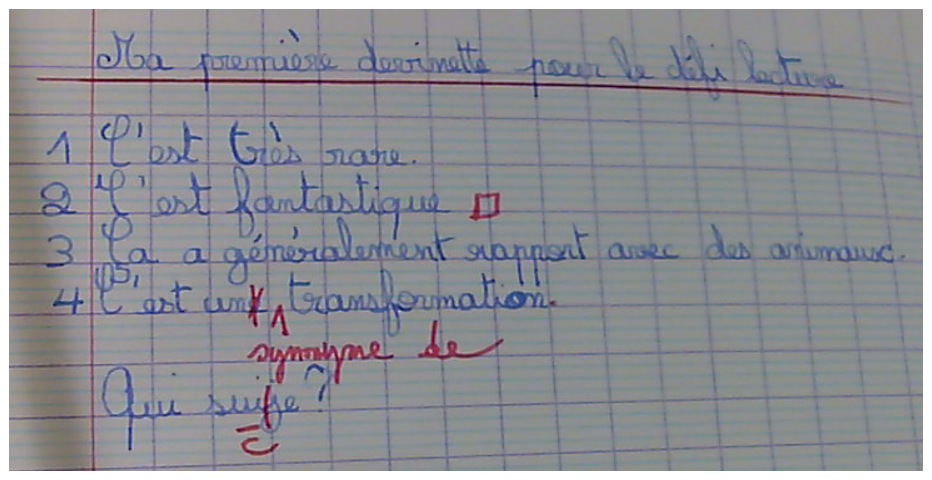 Ma première devinette pour le défi lecture
1 C'est très rare.
2 C'est fantastique
3 Ça a généralement rapport avec des animaux.
4 C'est un transformation.
synonyme de
Qui suije?